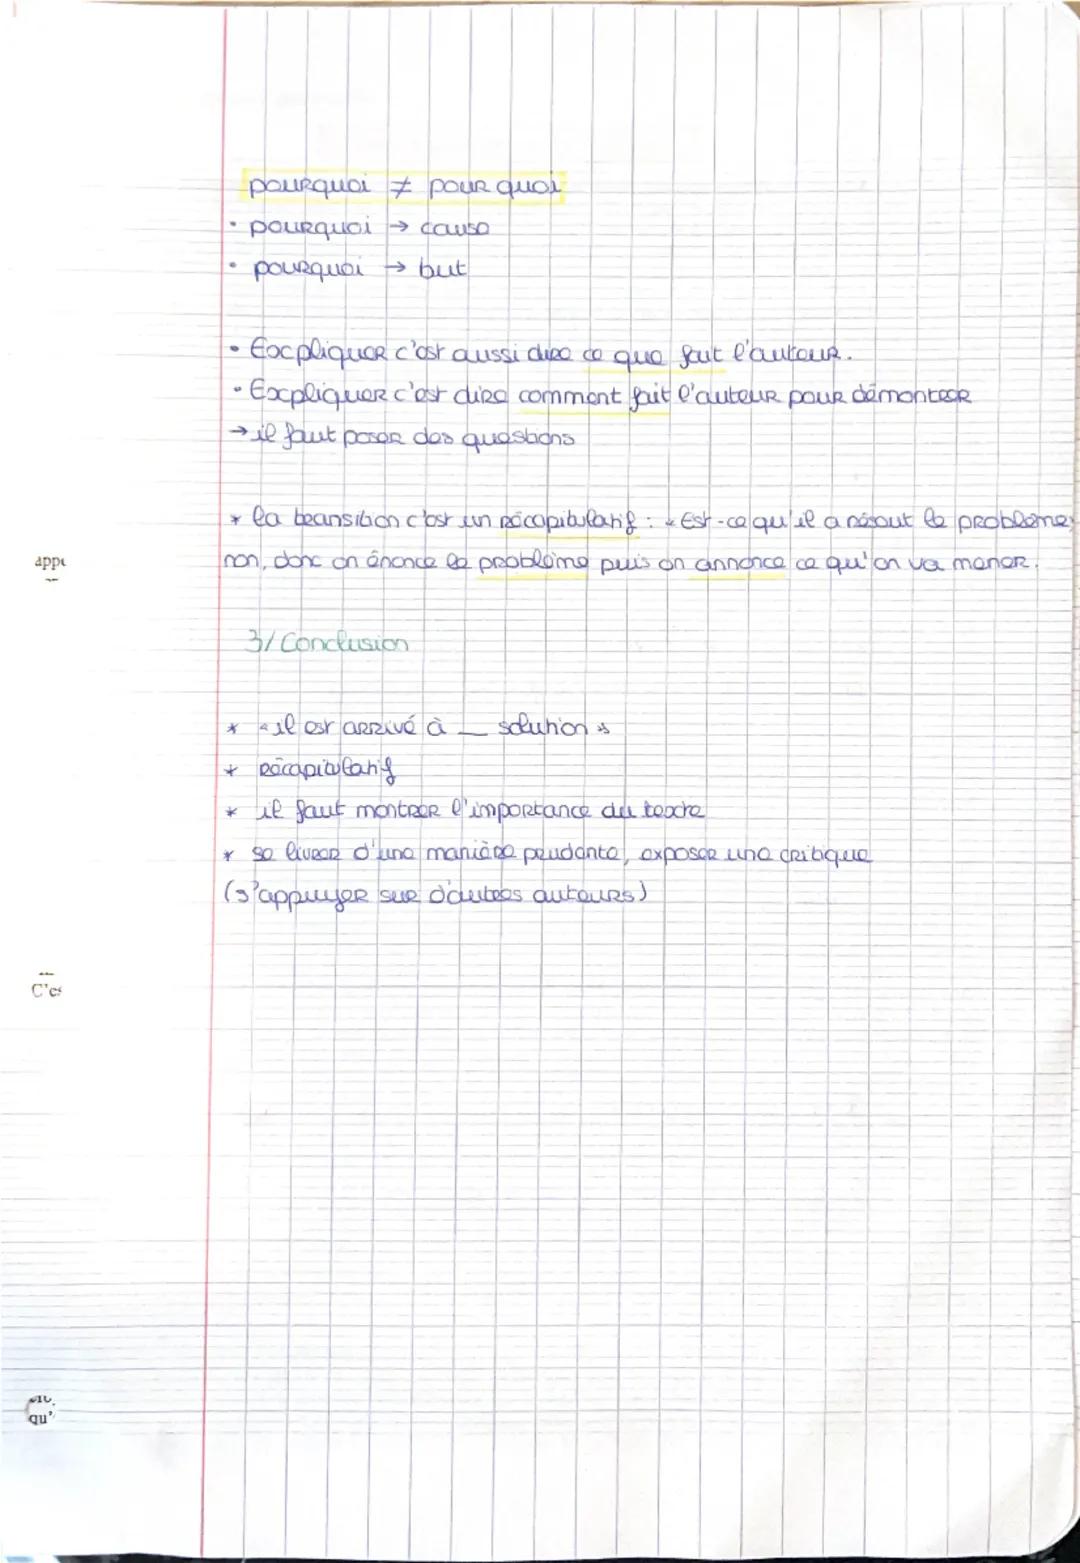 pourquoi ≠ pour quoi
• pourquoi → cause
• pourquoi → but
• Expliquer c'est aussi dire ce que fait l'auteur.
• Expliquer c'est dire comment fait l'auteur pour démontrer
→ il faut poser des questions
* la transition c'est un récapitulatif : « Est-ce qu'il a résout le problème,
non, donc on énonce le problème puis on annonce ce qu'on va mener.
appe
3/ Conclusion
* « il est arrivé à __ solution »
* récapitulatif
* il faut montrer l'importance du texte
* se livrer d'une manière prudente, exposer une critique
(s'appuyer sur d'autres auteurs)
C'es
qu'